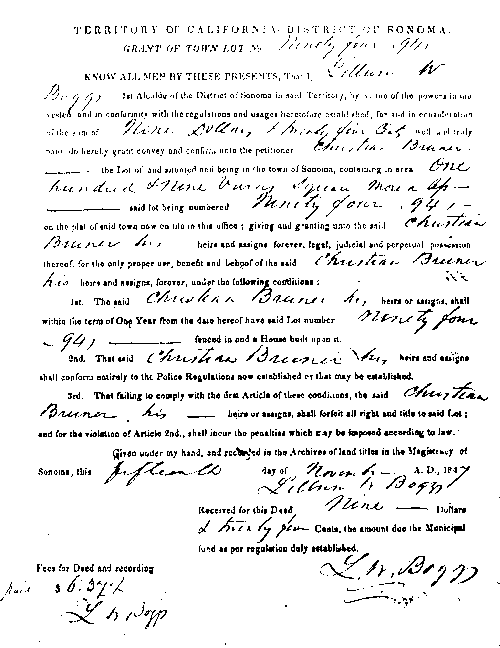 TERRITORY OF CALIFORNIA, DISTRICT OF SONOMA.
GRANT OF TOWN LOT No Ninety four 94
KNOW ALL MEN BY THESE PRESENTS, That I, Lilburn W
Boggs 1st Alcalde of the District of Sonoma in said Territory, by virtue of the powers in me
vested and in conformity with the regulations and usages heretofore established, for and in consideration
of the sum of Nine Dollars & twenty five Cts, well and truly
paid do hereby grant convey and confirm unto the petitioner Christian Bruner
the Lot of land situated and being in the town of Sonoma, containing in area One
hundred & Nine Varas Square More or
said lot being numbered Ninety four 94
on the plat of said town now on file in this office; giving and granting unto the said Christian
Bruner his heirs and assigns forever, legal, judicial and perpetual possession
thereof, for the only proper use, benefit and behoof of the said Christian Bruner
his heirs and assigns, forever, under the following conditions:
1st. The said Christian Bruner his heirs or assigns, shall
within the term of One Year from the date hereof have said Lot number Ninety four
94 fenced in and a House built upon it.
2nd. That said Christian Bruner his heirs and assigns
shall conform entirely to the Police Regulations now established or that may be established.
3rd. That failing to comply with the first Article of these conditions, the said Christian
Bruner his heirs or assigns, shall forfeit all right and title to said Lot;
and for the violation of Article 2nd., shall incur the penalties which may be imposed according to law.
Given under my hand, and recorded in the Archives of land titles in the Magistracy of
Sonoma, this fifteenth day of November A. D., 1847
Lilburn W Boggs
Received for this Deed, Nine Dollars
& twenty five Cents, the amount due the Municipal
fund as per regulation duly established.
L. W. Boggs
Fees for Deed and recording
paid $ 6.37½
L W Boggs